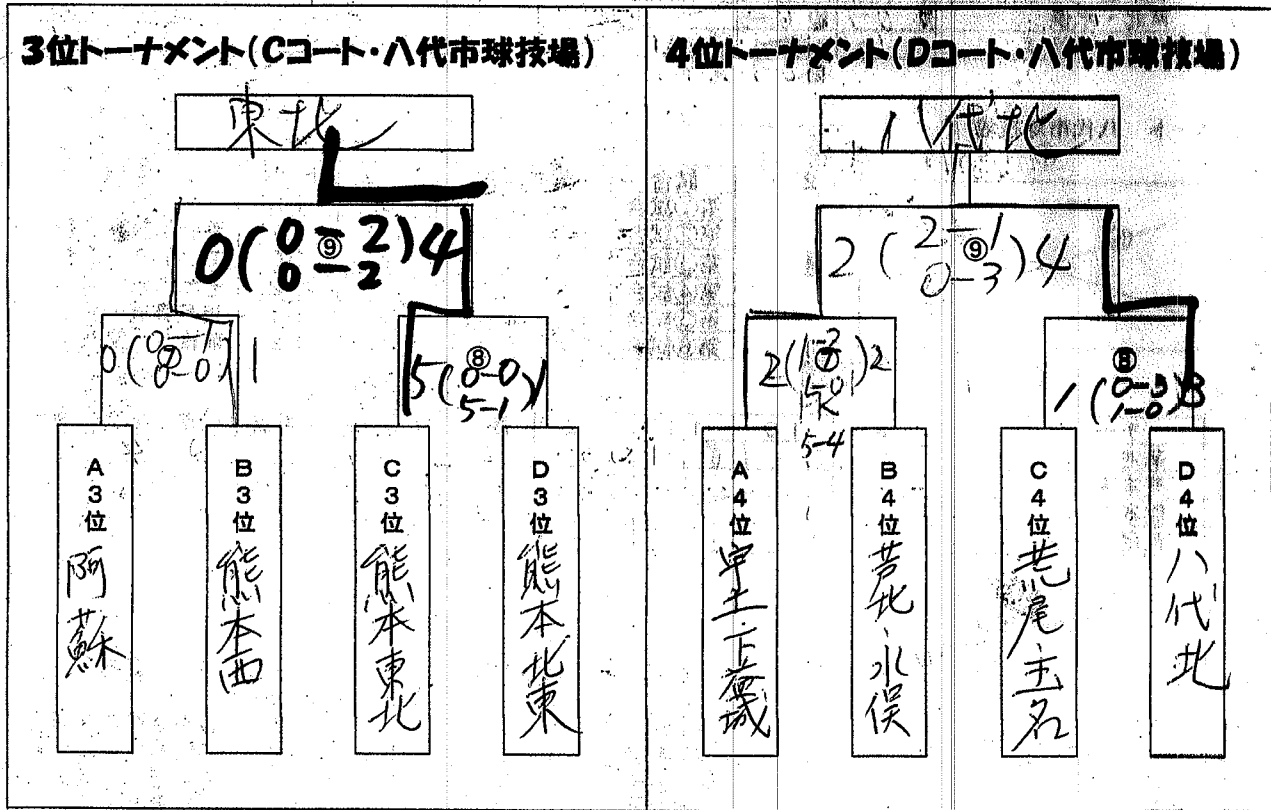 3位トーナメント(Cコート・八代市球技場)
東北
0(0-2)4
⑨
0-2
0(0-1)1
⑦
0-0
5(0-0)1
⑧
5-1
A3位 阿蘇
B3位 熊本西
C3位 熊本東北
D3位 熊本北東
4位トーナメント(Dコート・八代市球技場)
八代北
2(2-1)4
⑨
0-3
2(1-2)2
⑦
1-0
PK
5-4
1(0-3)3
⑧
1-0
A4位 宇土・下益城
B4位 芦北・水俣
C4位 荒尾玉名
D4位 八代北